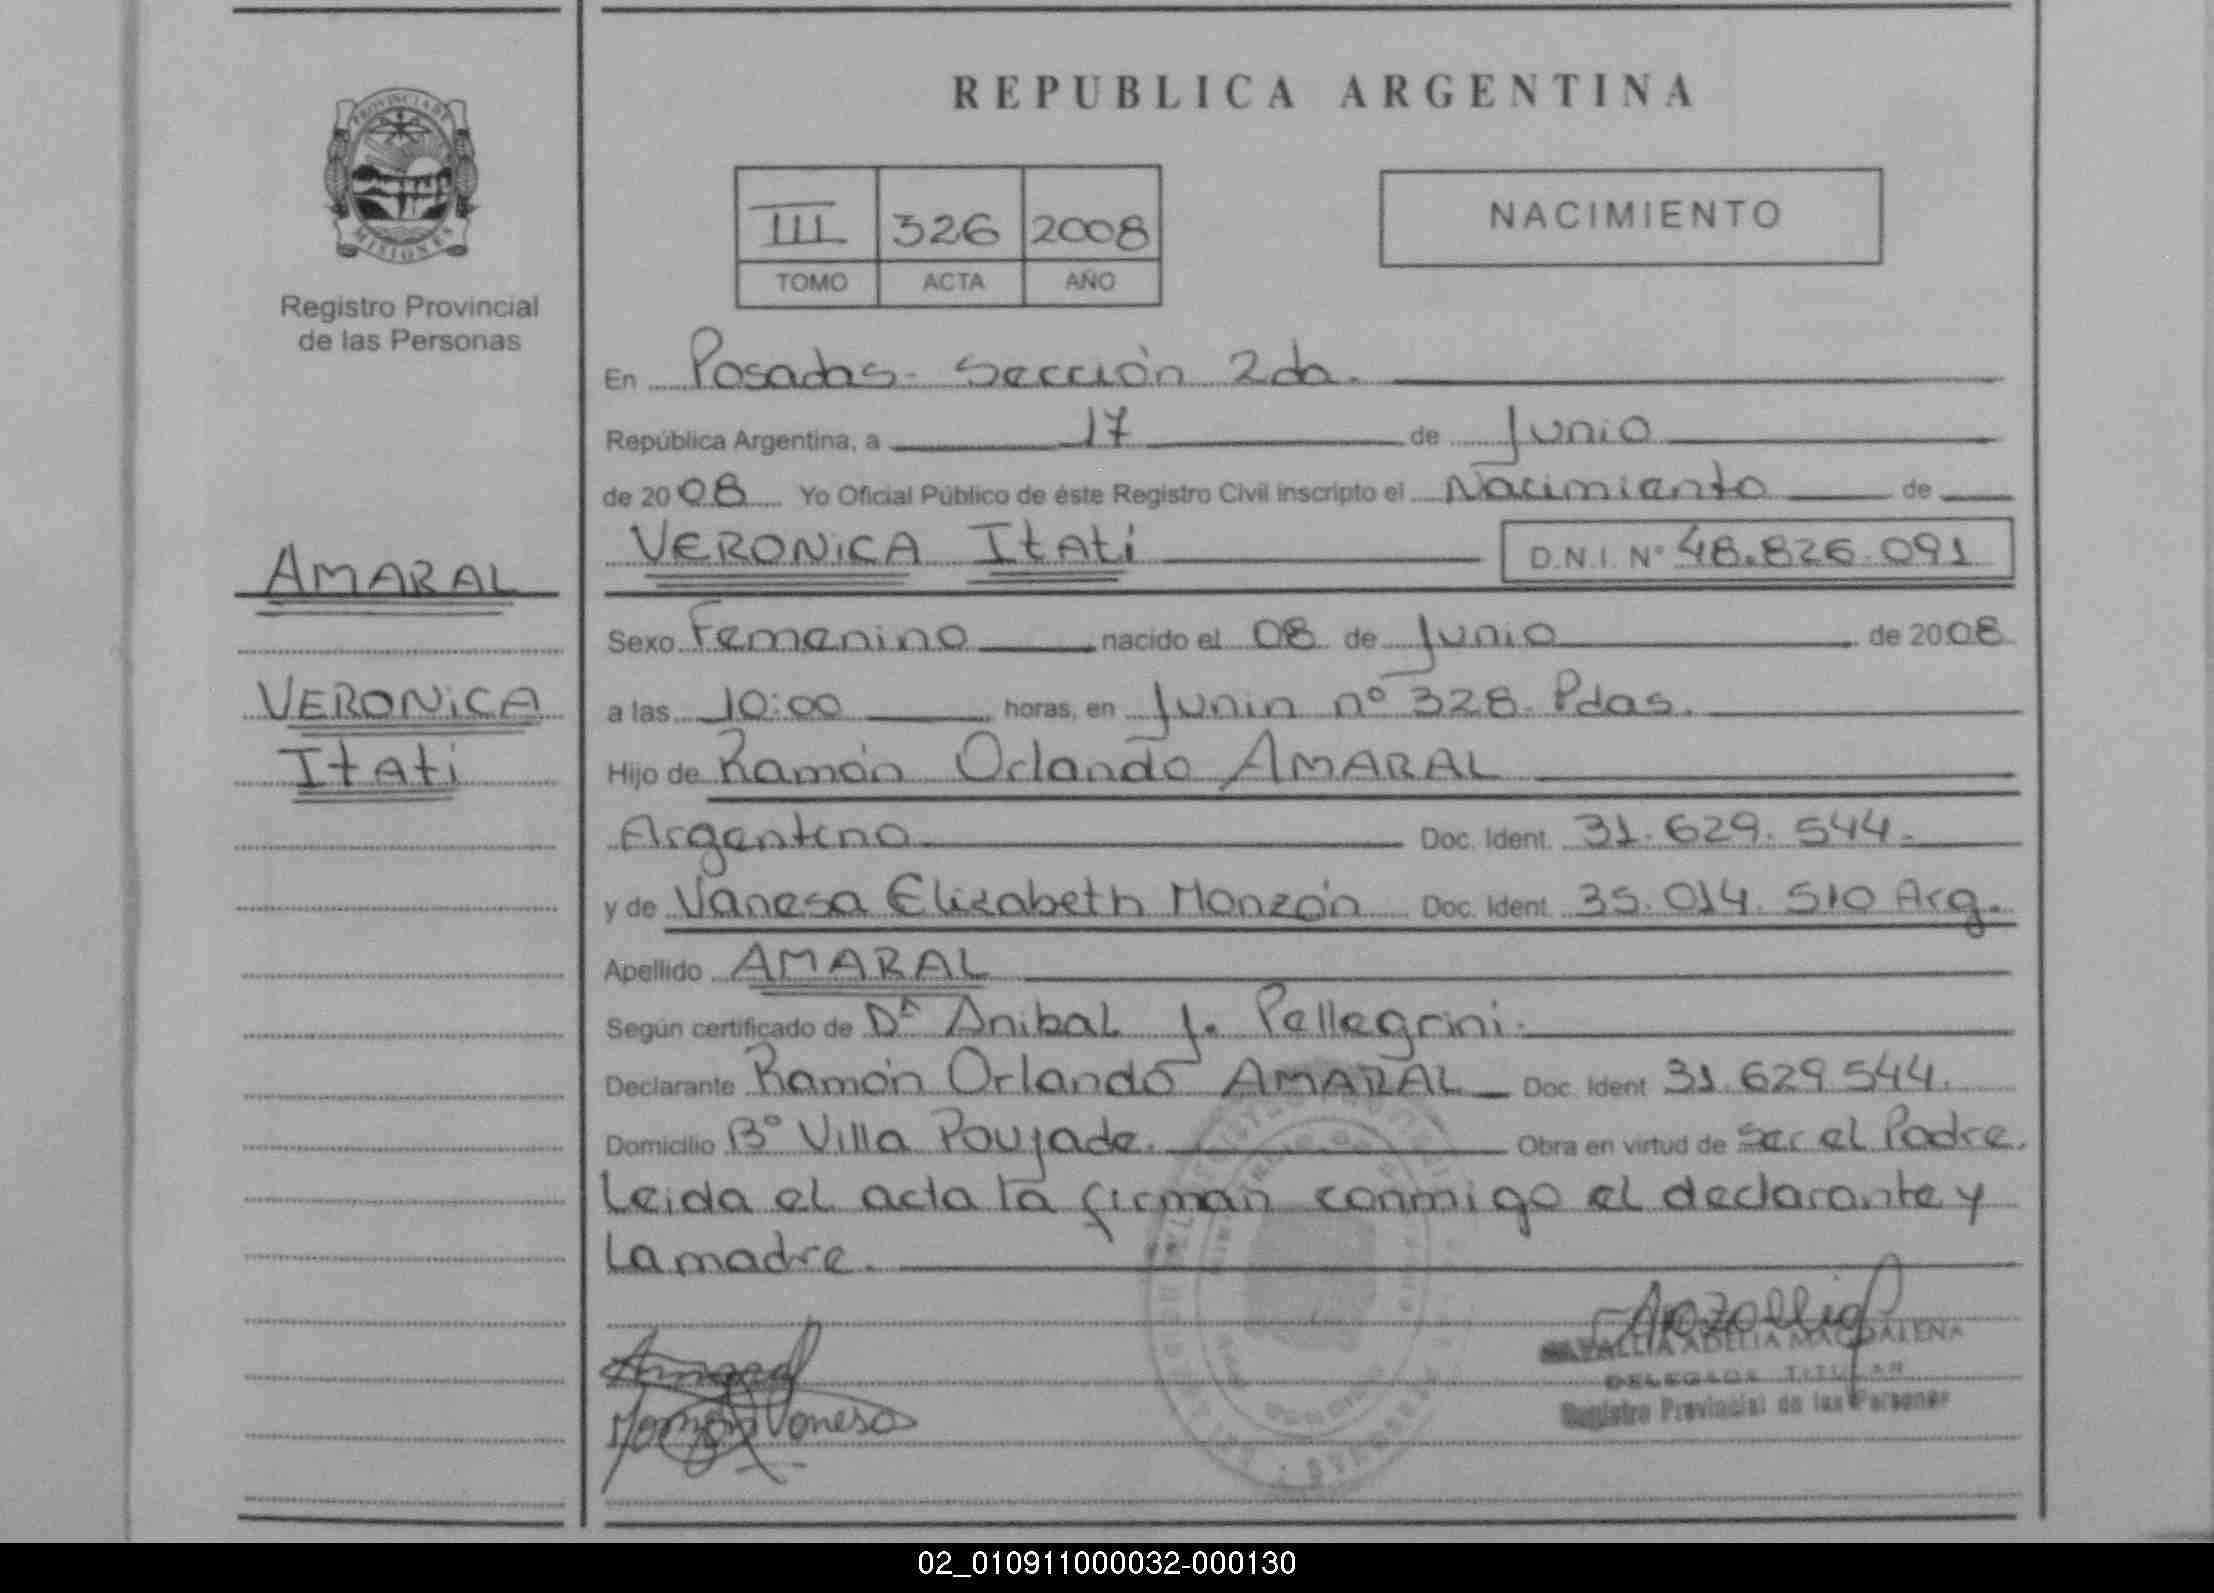 REPUBLICA ARGENTINA
PROVINCIA DE
MISIONES
Registro Provincial
de las Personas
III 326 2008
TOMO ACTA AÑO
NACIMIENTO
En Posadas - Sección 2da.
República Argentina, a 17 de Junio
de 2008 Yo Oficial Público de éste Registro Civil inscripto el Nacimiento de
VERONICA Itati D.N.I. Nº 48.826.091
AMARAL
VERONICA
Itati
Sexo Femenino nacido el 08 de Junio de 2008
a las 10:00 horas, en Junin nº 328. Pdas.
Hijo de Ramón Orlando AMARAL
Argentino Doc. Ident. 31.629.544.-
y de Vanesa Elizabeth Monzón Doc. Ident. 35.014.510 Arg.
Apellido AMARAL
Según certificado de Dr Anibal J. Pellegrini.
Declarante Ramón Orlando AMARAL Doc. Ident 31.629.544.
Domicilio Bº Villa Poujade. Obra en virtud de ser el Padre.
Leida el acta la firman conmigo el declarante y
la madre.
Monzón Vanesa
ADELIA MAGDALENA
DELEGADA TITULAR
Registro Provincial de las Personas
02_010911000032-000130